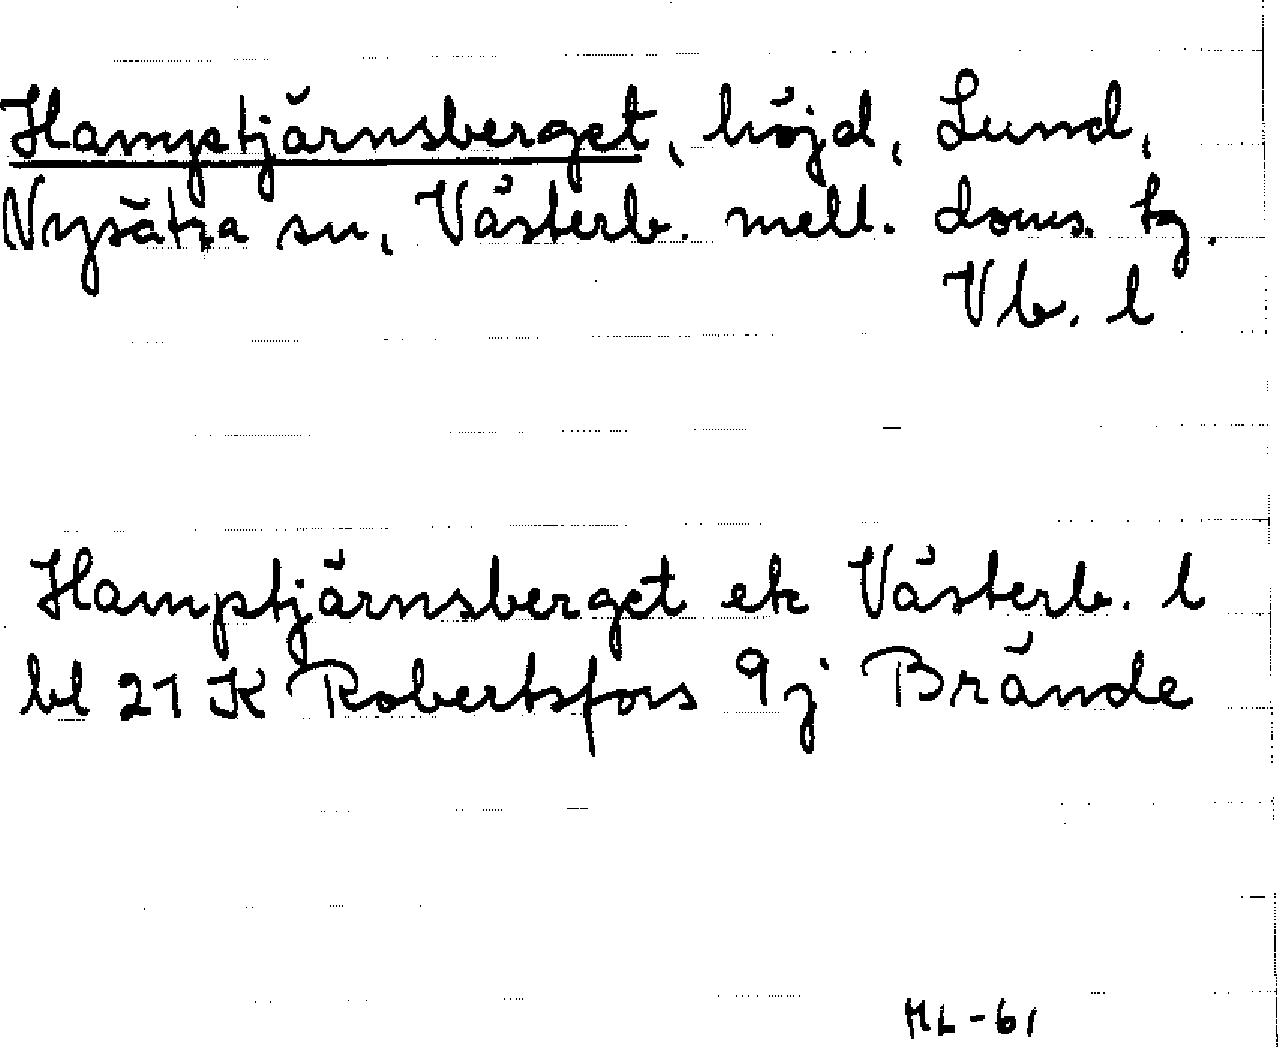 Hamptjärnsberget, höjd, Lund,
Nysätra sn, Västerb. mell. doms. tg.
Vb. l
Hamptjärnsberget ek Västerb. l
bl 21 K Robertsfors 9j Brände
ML-61